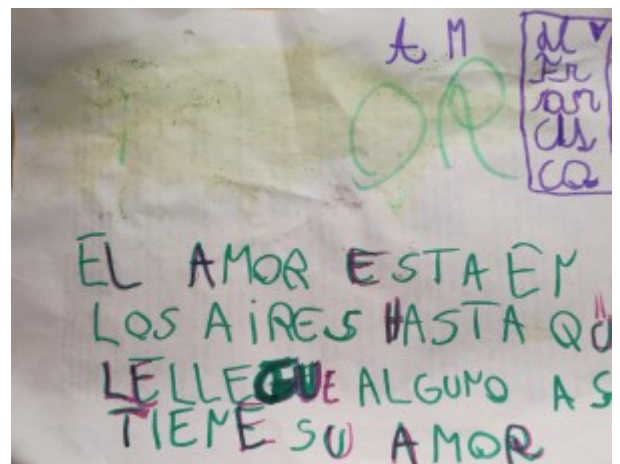 AM
OR
EL AMOR ESTA EN
LOS AIRES HASTA QU
LE LLEGUE ALGUNO AS
TIENE SU AMOR